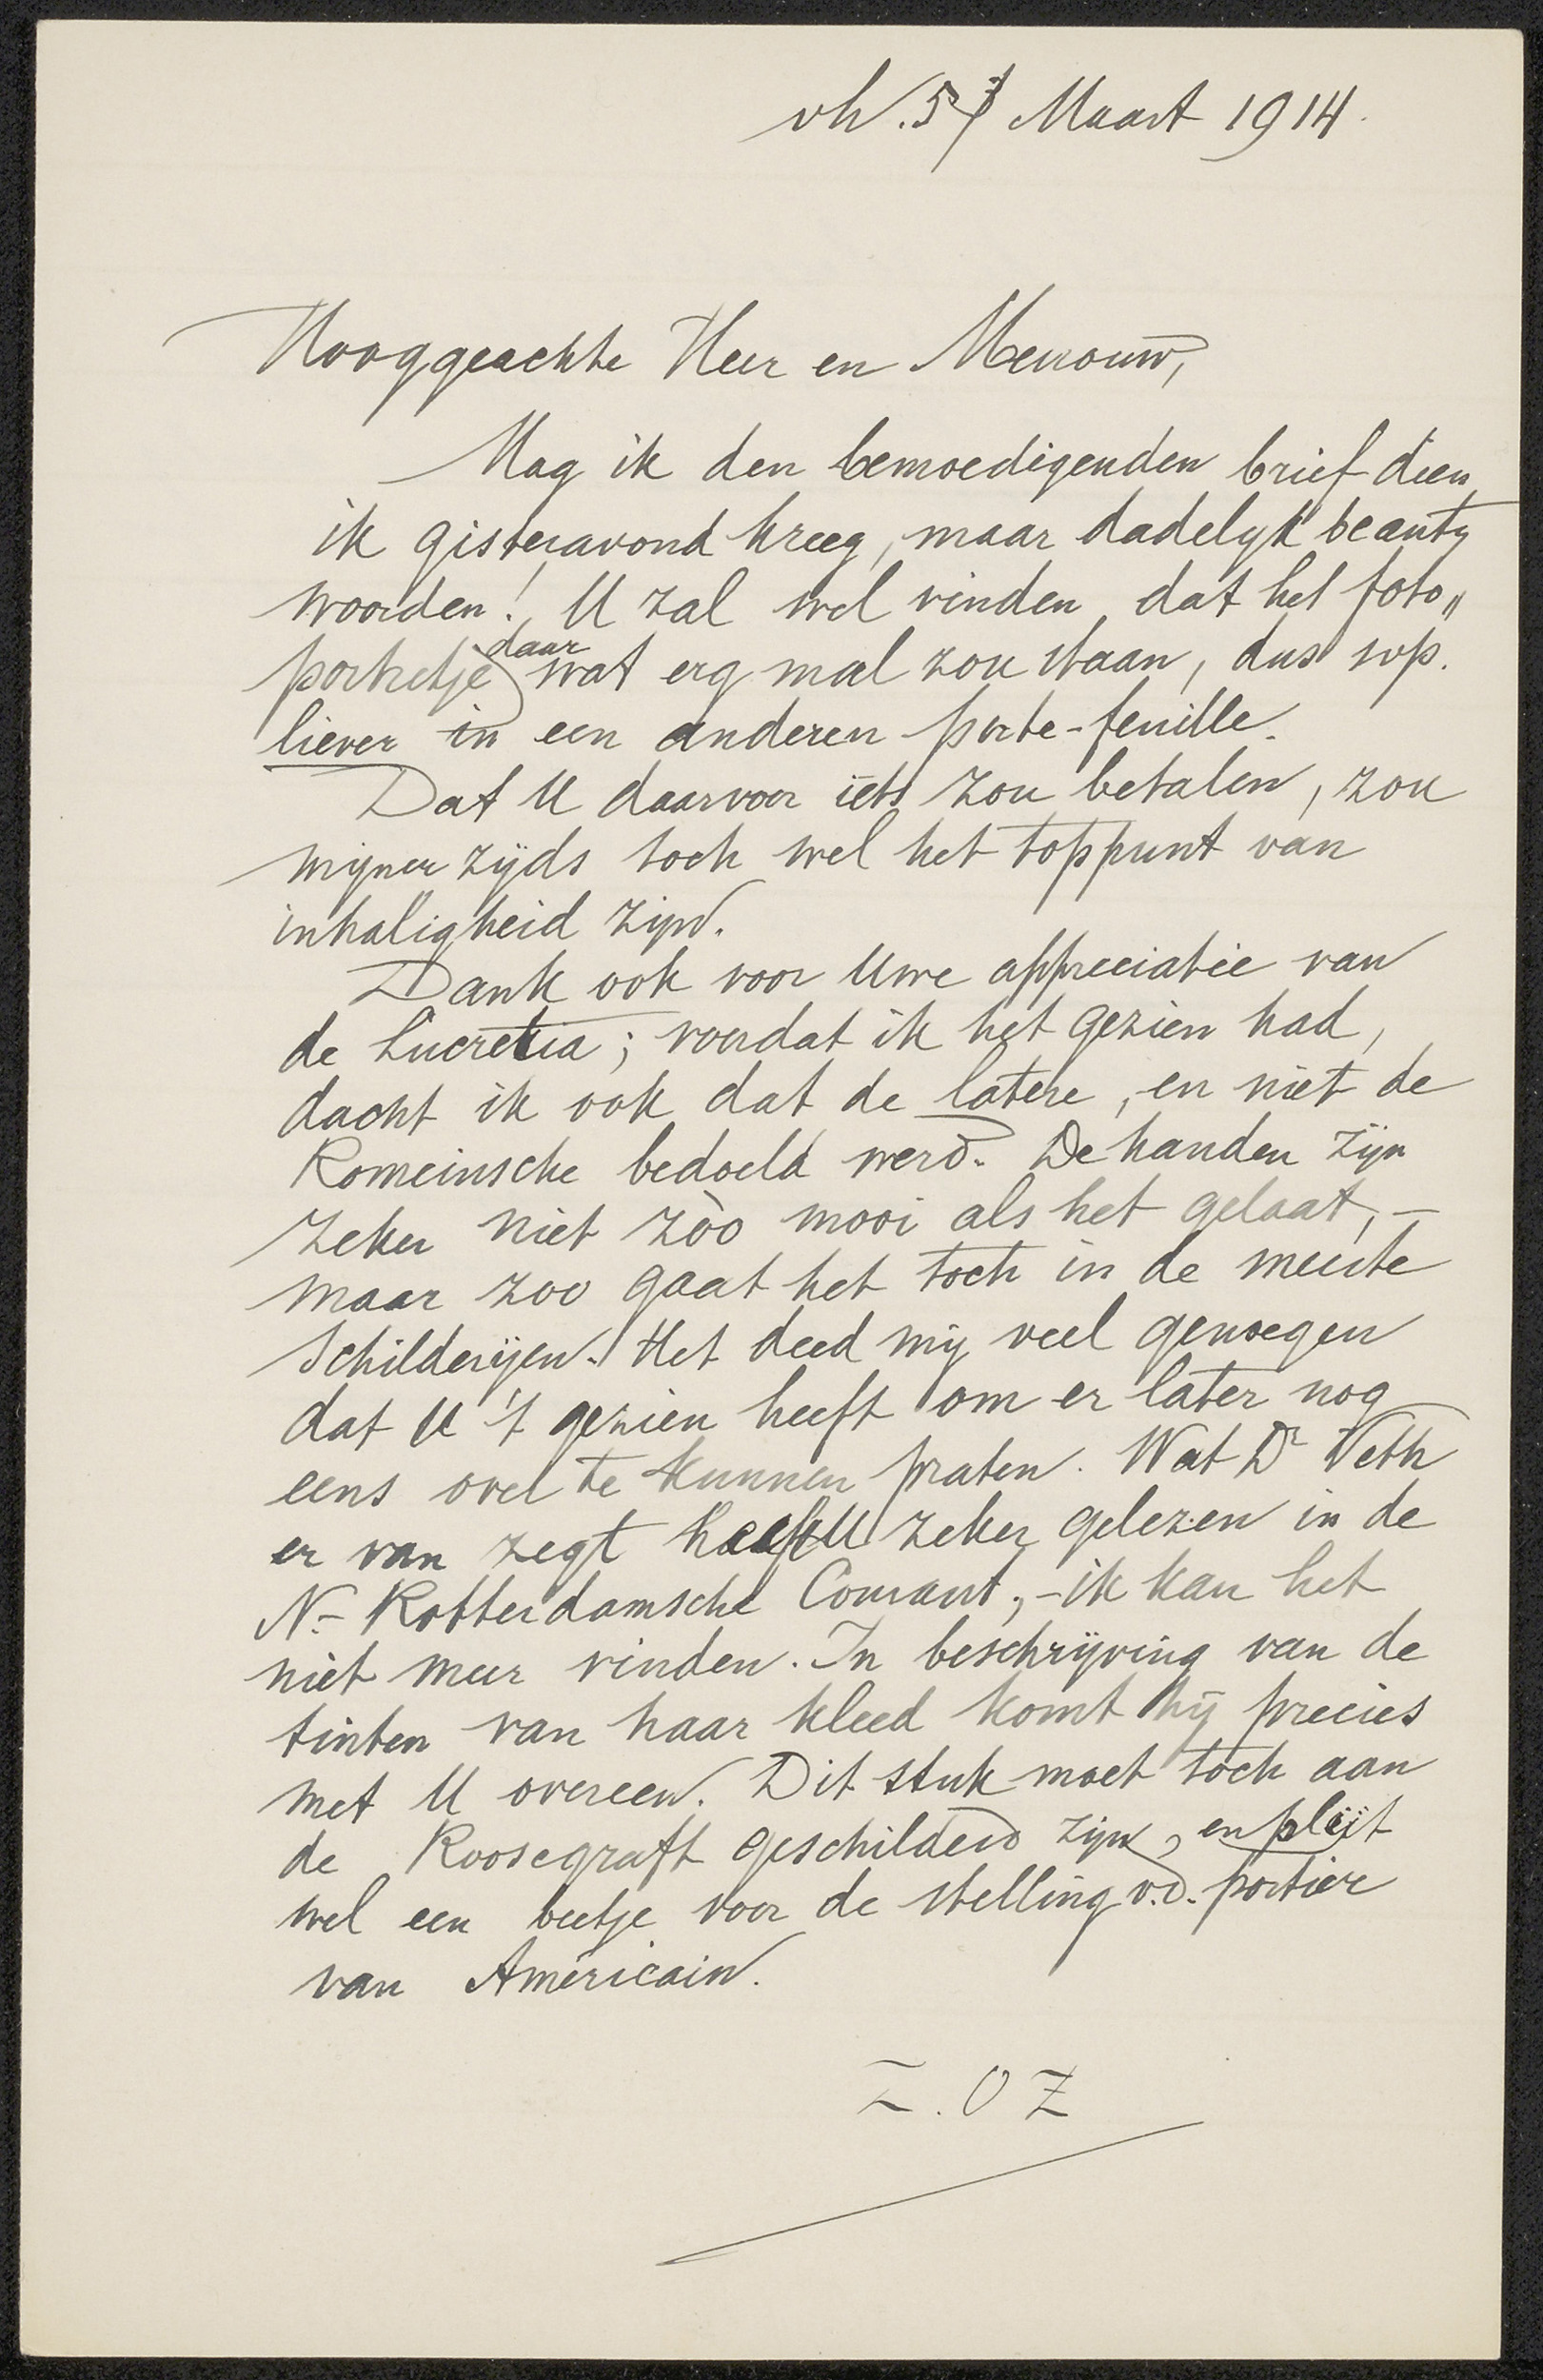 vh. 57 Maart 1914.
Hooggeachte Heer en Mevrouw,
Mag ik den bemoedigenden brief dien
ik gisteravond kreeg, maar dadelyk beant„
woorden! U zal wel vinden dat het foto„
portretje daar wat erg mal zou staan, dus svp.
liever in een anderen porte-feuille.
Dat U daarvoor iets zou betalen, zou
mijner zijds toch wel het toppunt van
inhaligheid zijn.
Dank ook voor Uwe appreciatie van
de Lucretia; voordat ik het gezien had,
dacht ik ook dat de latere, en niet de
Romeinsche bedoeld werd. De handen zijn
zeker niet zòo mooi als het gelaat, –
maar zoo gaat het toch in de meeste
schilderijen. Het deed mij veel genoegen
dat U 't gezien heeft om er later nog
eens over te kunnen praten. Wat Dr Veth
er van zegt heeft U zeker gelezen in de
N. Rotterdamsche Courant; – ik kan het
niet meer vinden. In beschrijving van de
tinten van haar kleed komt hij precies
met U overeen. Dit stuk moet toch aan
de Roosegraft geschilderd zijn, en pleit
wel een beetje voor de stelling v.d. portier
van Américain.
Z.O.Z